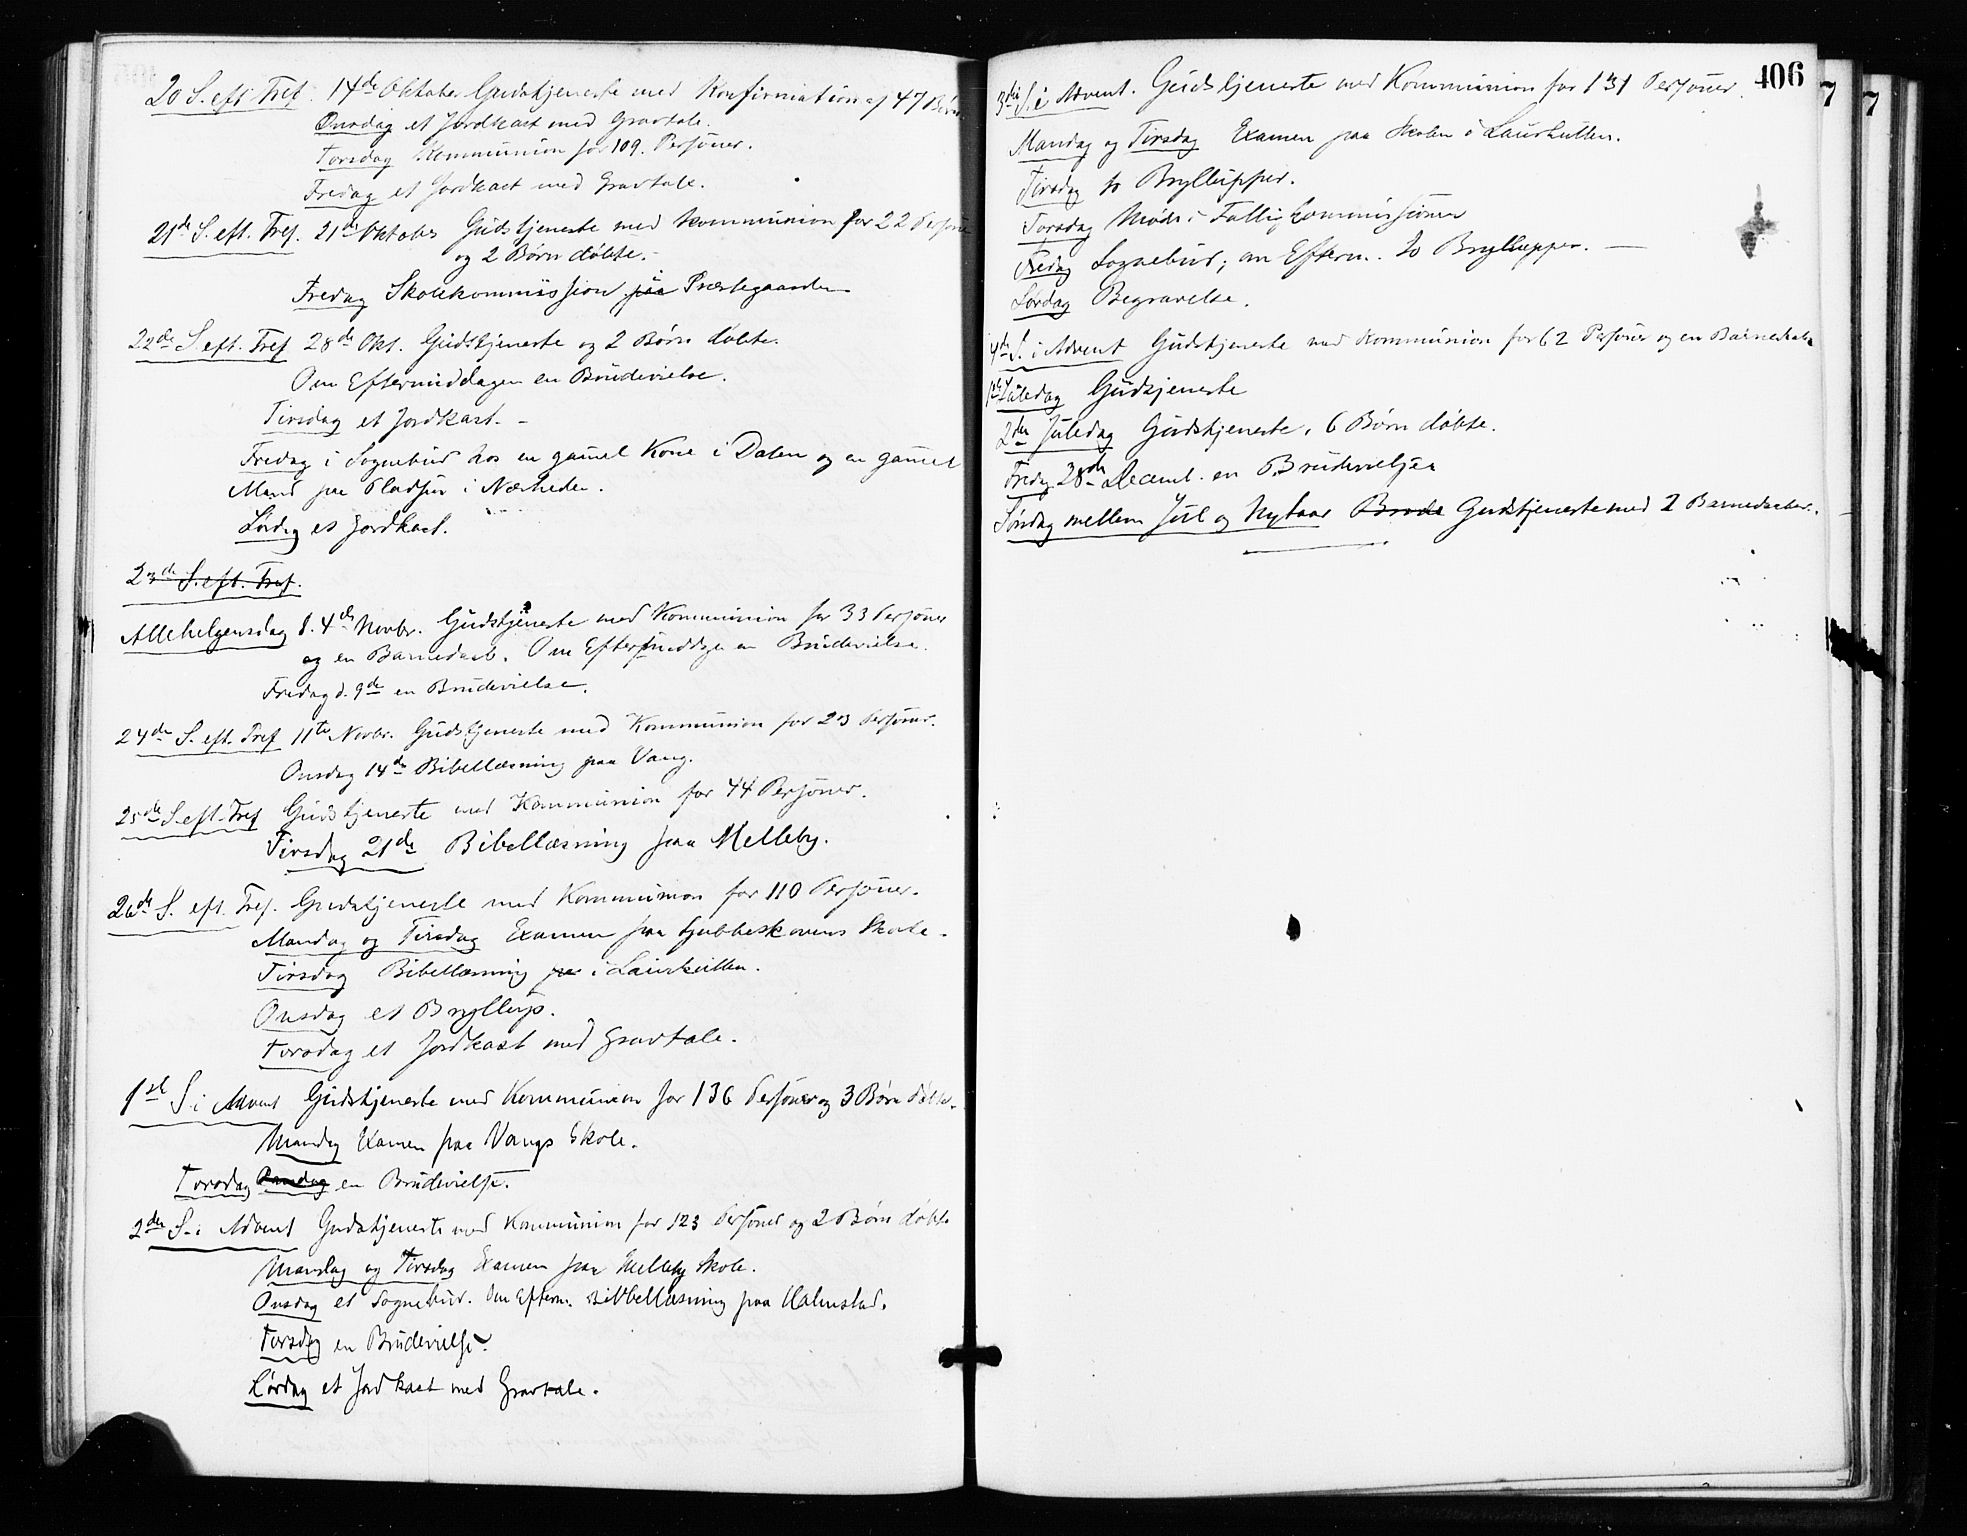 20 S. eft Tref. 14de Oktober Gudstjeneste med Konfirmation af 47 Børn
Onsdag et Jordkast med Gravtale.
Torsdag Kommunion for 109. Personer.
Fredag et Jordkast med Gravtale.
21de S. eft. Tref. 21de Oktober Gudstjeneste med Kommunion for 22 Persone
og 2 Børn døbte.
Fredag Skolekommission paa Præstegaarden
22de S. eft. Tref 28de Okt. Gudstjeneste og 2 Børn døbte.
Om Eftermiddagen en Brudevielse.
Tirsdag et Jordkast.
Fredag i Sognebud hos en gamel Kone i Dalen og en gamel
Mand paa Pladsen i Nærheden.
Lørdag et Jordkast.
23de S. eft. Tref.
Allehelgensdag d. 4de Novbr. Gudstjeneste med Kommunion for 33 Personer
og en Barnedaab. Om Eftermiddagen Brudevielse.
Fredag d. 9de en Brudevielse.
24de S. eft. Tref 11te Novbr. Gudstjeneste med Kommunion for 23 Personer.
Onsdag 14de Bibellæsning paa Vang.
25de S. eft. Tref Gudstjeneste med Kommunion for 44 Personer.
Tirsdag 21de Bibellæsning paa Melleby.
26de S. eft. Tref. Gudstjeneste med Kommunion for 110 Personer.
Mandag og Tirsdag Examen paa Gubbeskovens Skole.
Tirsdag Bibellæsning paa i Laushutten.
Onsdag et Bryllup.
Torsdag et Jordkast med Gravtale.
1ste S. i Advent Gudstjeneste med Kommunion for 136 Personer og 3 Børn døbte.
Mandag Examen paa Vangs Skole.
Torsdag en Brudevielse.
2den S. i Advent Gudstjeneste med Kommunion for 123 Personer og 2 Børn døbte
Mandag og Tirsdag Examen paa Melleby Skole.
Onsdag et Sognebud. Om Efterm. Bibbellæsning paa Halmstad.
Torsdag en Brudevielse.
Lørdag et Jordkast med Gravtale.
406
7
7
3die S. i Advent. Gudstjeneste med Kommunion for 131 Personer.
Mandag og Tirsdag Examen paa Skolen i Laushutten.
Tirsdag to Brylupper.
Torsdag Møde i Fattigkommissionen
Fredag Sognebud; om Efterm. to Brylluper.
Lørdag Begravelse.
4de S. i Advent Gudstjeneste med Kommunion for 62 Personer og en Barnedaab
1ste Juledag Gudsjeneste
2den Juledag Gudstjeneste, 6 Børn døbte.
Fredag 28de Decemb. en Brudevielse
Søndag mellem Jul og Nytaar Brude Gudstjeneste med 2 Barnedaaber.